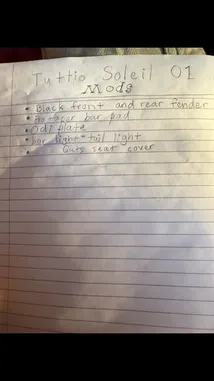 Tuttio Soleil 01
Mods
• Black front and rear fender
• Protaper bar pad
• Odi plate
• bar light + tail light
• Guts seat cover